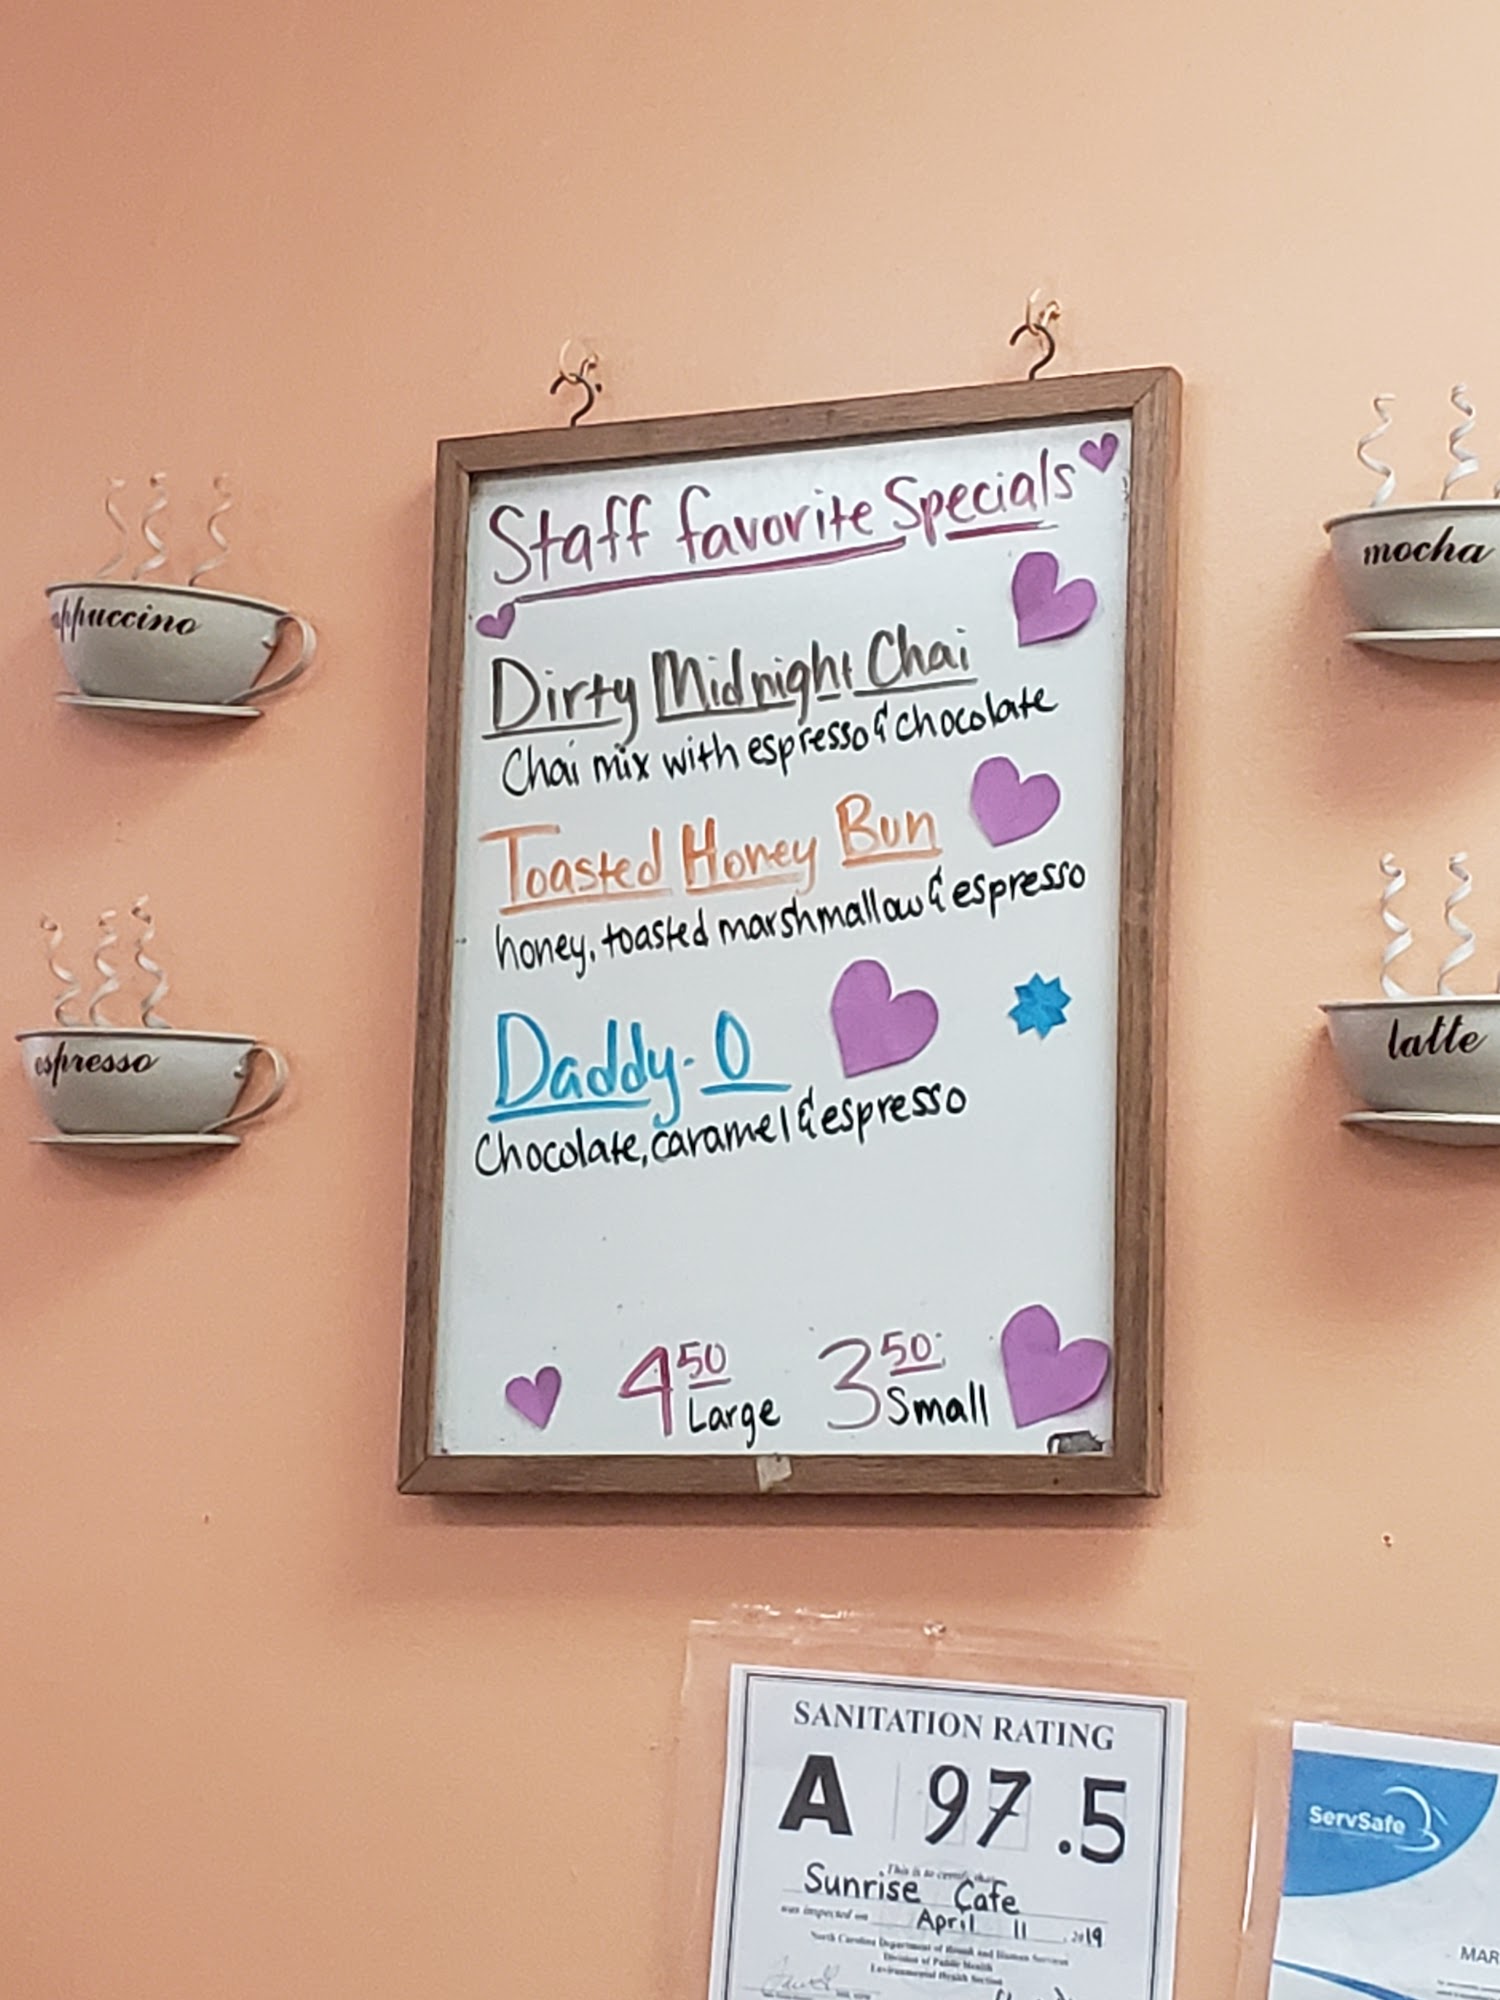 Staff favorite Specials
Dirty Midnight Chai
Chai mix with espresso & chocolate
Toasted Honey Bun
honey, toasted marshmallow & espresso
Daddy-O
Chocolate, caramel & espresso
4.50 3.50
Large Small
ppuccino
espresso
mocha
latte
SANITATION RATING
A 97.5
This is to certify that
Sunrise Cafe
was inspected on April 11, 2019
North Carolina Department of Health and Human Services
Division of Public Health
Environmental Health Section
ServSafe
MAR